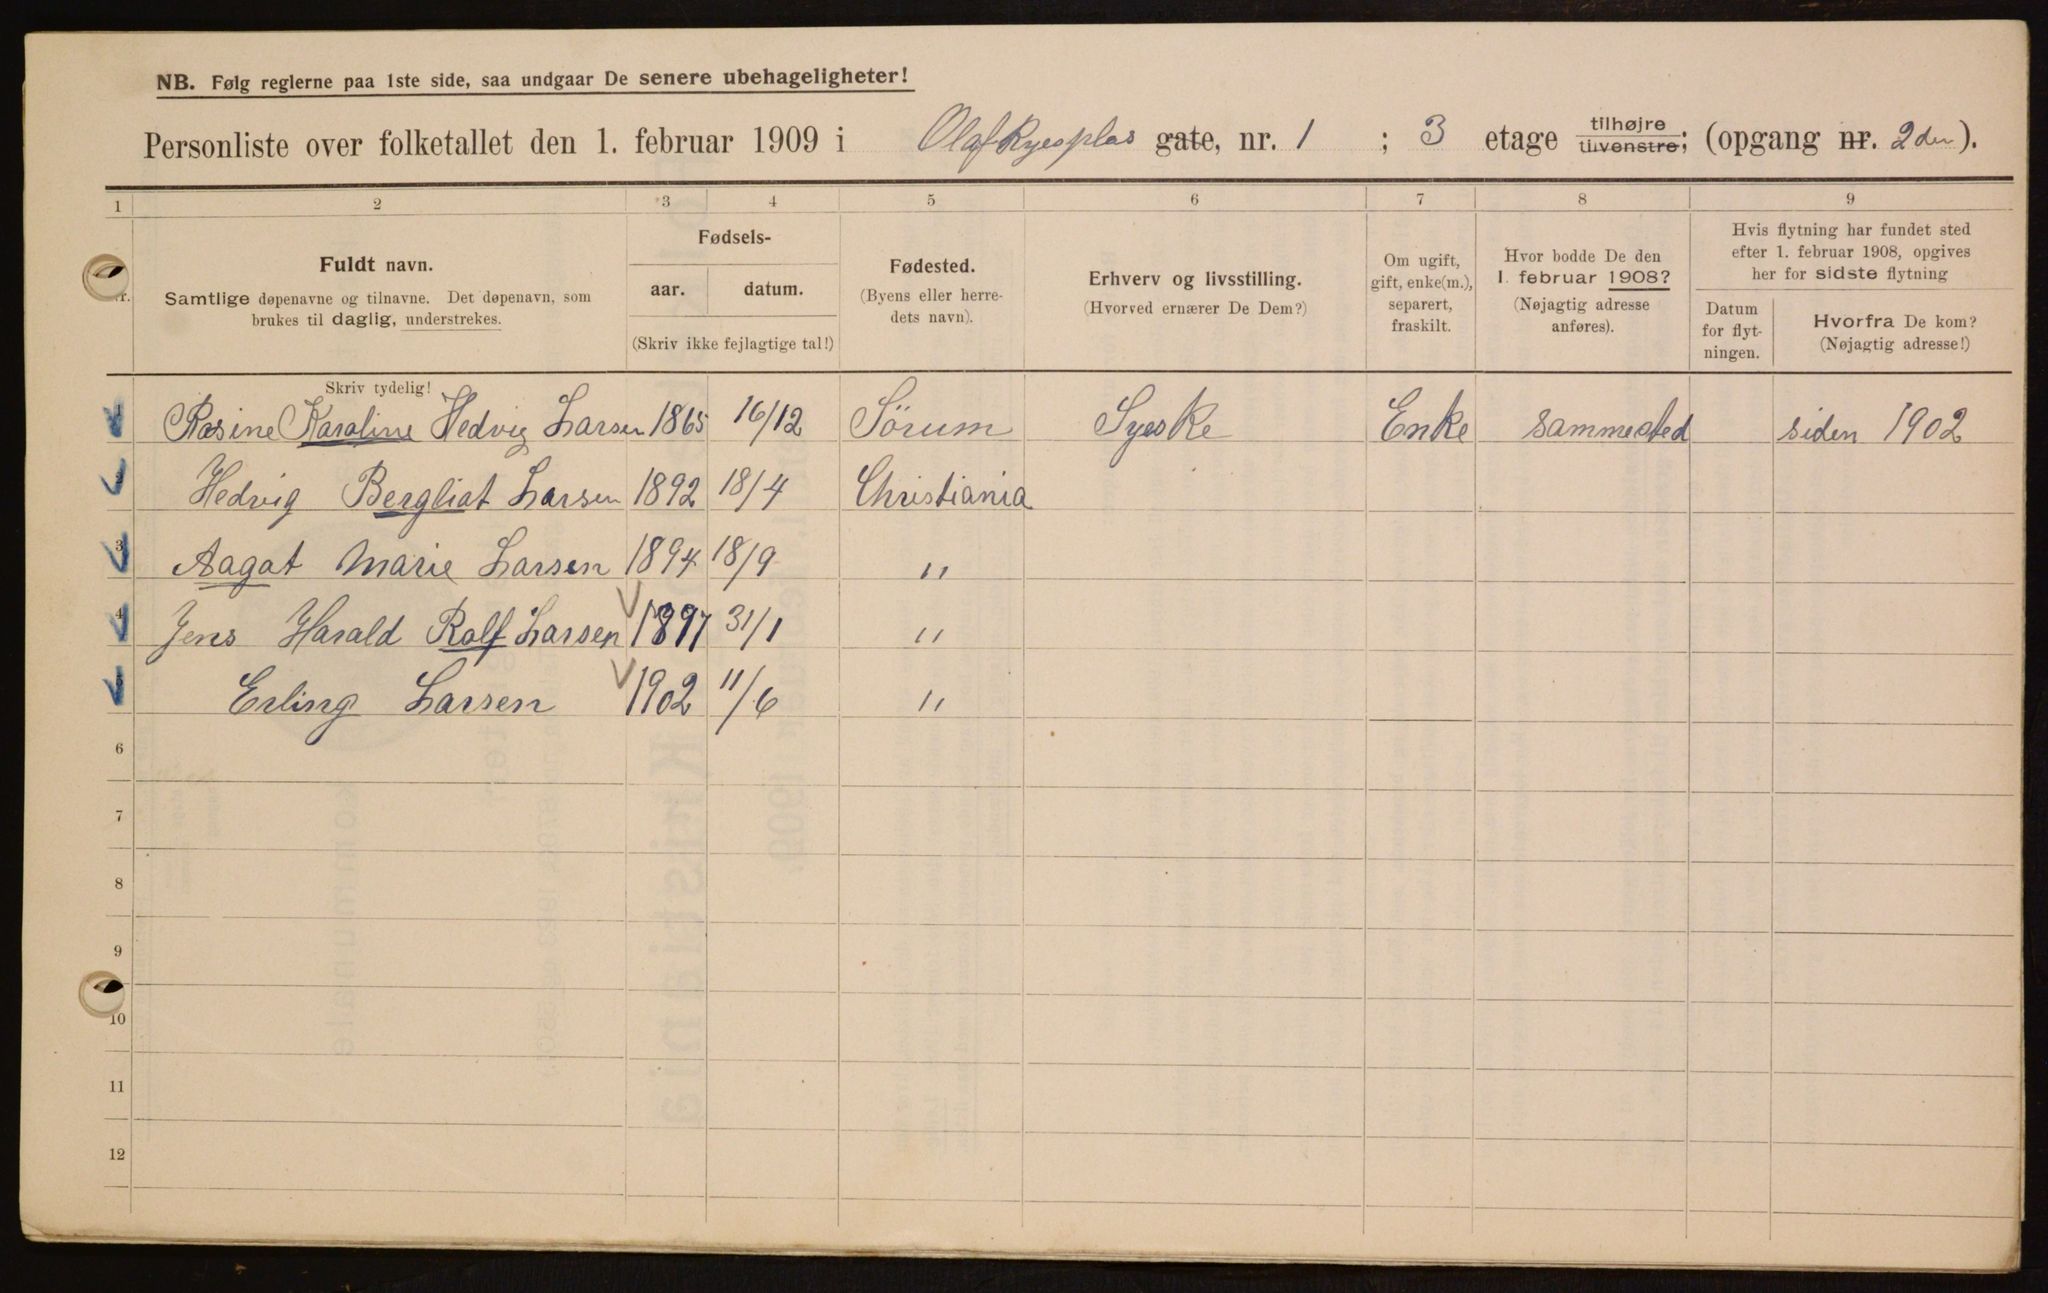 NB. Følg reglerne paa 1ste side, saa undgaar De senere ubehageligheter!
Personliste over folketallet den 1. februar 1909 i Olaf Ryesplas gate, nr. 1 ; 3 etage tilhøjre tilvenstre; (opgang nr. 2den).
1 2 3 4 5 6 7 8 9
Fuldt navn.
Samtlige døpenavne og tilnavne. Det døpenavn, som
brukes til daglig, understrekes.
Fødsels-
aar. datum.
(Skriv ikke fejlagtige tal!)
Fødested.
(Byens eller herre-
dets navn).
Erhverv og livsstilling.
(Hvorved ernærer De Dem?)
Om ugift,
gift, enke(m.),
separert,
fraskilt.
Hvor bodde De den
1. februar 1908?
(Nøjagtig adresse
anføres).
Hvis flytning har fundet sted
efter 1. februar 1908, opgives
her for sidste flytning
Datum
for flyt-
ningen.
Hvorfra De kom?
(Nøjagtig adresse!)
Skriv tydelig!
1 Rosine Karoline Hedvig Larsen 1865 16/12 Sörum Syeske Enke sammested siden 1902
2 Hedvig Bergliat Larsen 1892 18/4 Christiania
3 Aagot Marie Larsen 1894 18/9 "
4 Jens Harald Rolf Larsen 1897 31/1 "
5 Erling Larsen 1902 11/6 "
6
7
8
9
10
11
12